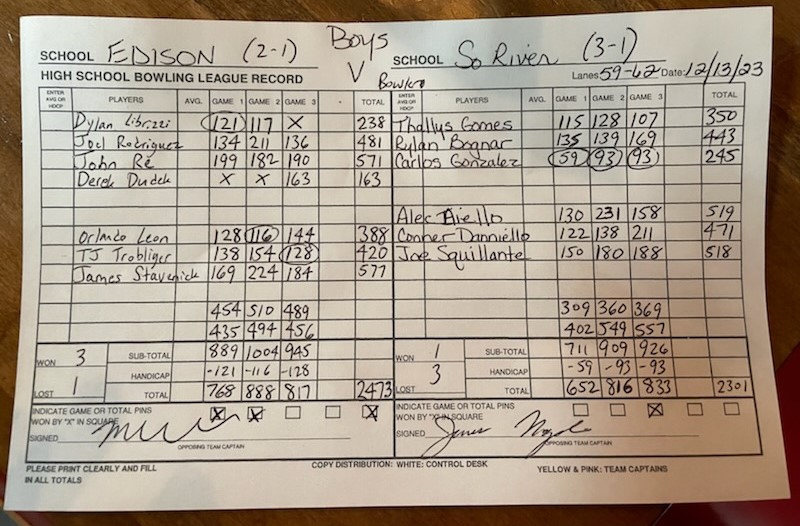 Boys
SCHOOL EDISON (2-1) V SCHOOL So River (3-1)
HIGH SCHOOL BOWLING LEAGUE RECORD Bowlero Lanes 59-62 Date: 12/13/23
ENTER AVG OR HDCP PLAYERS AVG. GAME 1 GAME 2 GAME 3 TOTAL ENTER AVG OR HDCP PLAYERS AVG. GAME 1 GAME 2 GAME 3 TOTAL
Dylan Librizzi 121 117 X 238 Thallys Gomes 115 128 107 350
Joel Rodriguez 134 211 136 481 Rylan Bognar 135 139 169 443
John Re 199 182 190 571 Carlos Gonzalez 59 93 93 245
Derek Dudek X X 163 163
Alec Aiello 130 231 158 519
Orlando Leon 128 116 144 388 Conner Danniello 122 138 211 471
TJ Trobliger 138 154 128 420 Joe Squillante 150 180 188 518
James Stavenick 169 224 184 577
454 510 489 309 360 369
435 494 456 402 549 557
WON 3 SUB-TOTAL 889 1004 945 WON 1 SUB-TOTAL 711 909 926
HANDICAP -121 -116 -128 3 HANDICAP -59 -93 -93
LOST 1 TOTAL 768 888 817 2473 LOST TOTAL 652 816 833 2301
INDICATE GAME OR TOTAL PINS X X X INDICATE GAME OR TOTAL PINS X
WON BY "X" IN SQUARE WON BY "X" IN SQUARE
SIGNED SIGNED
OPPOSING TEAM CAPTAIN OPPOSING TEAM CAPTAIN
PLEASE PRINT CLEARLY AND FILL COPY DISTRIBUTION: WHITE: CONTROL DESK YELLOW & PINK: TEAM CAPTAINS
IN ALL TOTALS